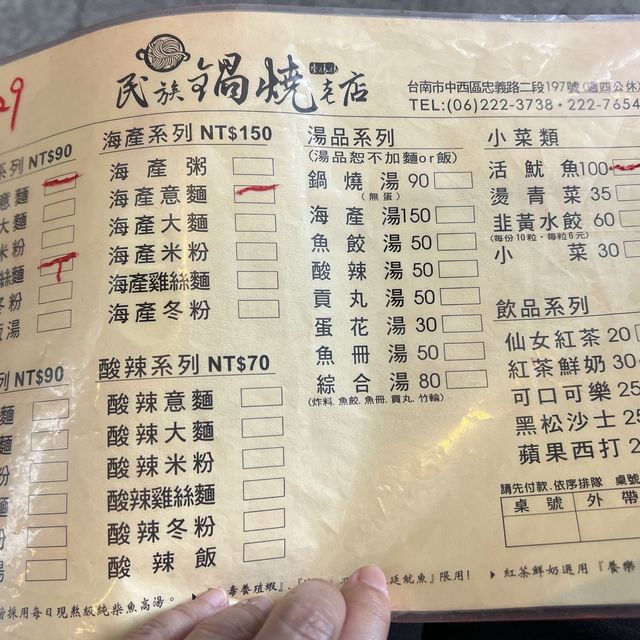 29
民族鍋燒老店
台南市中西區忠義路二段197號(週四公休)
TEL:(06)222-3738・222-7654
系列 NT$90
意麵
大麵
米粉
絲麵
冬粉
飯湯
海產系列 NT$150
海產粥
海產意麵
海產大麵
海產米粉
海產雞絲麵
海產冬粉
湯品系列
(湯品恕不加麵or飯)
鍋燒湯 90
(無蛋)
海產湯 150
魚餃湯 50
酸辣湯 50
貢丸湯 50
蛋花湯 30
魚冊湯 50
綜合湯 80
(炸料.魚餃.魚冊.貢丸.竹輪)
小菜類
活魷魚 100
燙青菜 35
韭黃水餃 60
(每份10粒・每粒6元)
小菜 30
列 NT$90
麵
麵
粉
麵
粉
湯
酸辣系列 NT$70
酸辣意麵
酸辣大麵
酸辣米粉
酸辣雞絲麵
酸辣冬粉
酸辣飯
飲品系列
仙女紅茶 20
紅茶鮮奶 30
可口可樂 25
黑松沙士 25
蘋果西打 2
請先付款.依序排隊 桌號
桌號 外帶
皆採用每日現熬級純柴魚高湯。
毒養殖蝦』.
廷魷魚』限用!
紅茶鮮奶選用『養樂